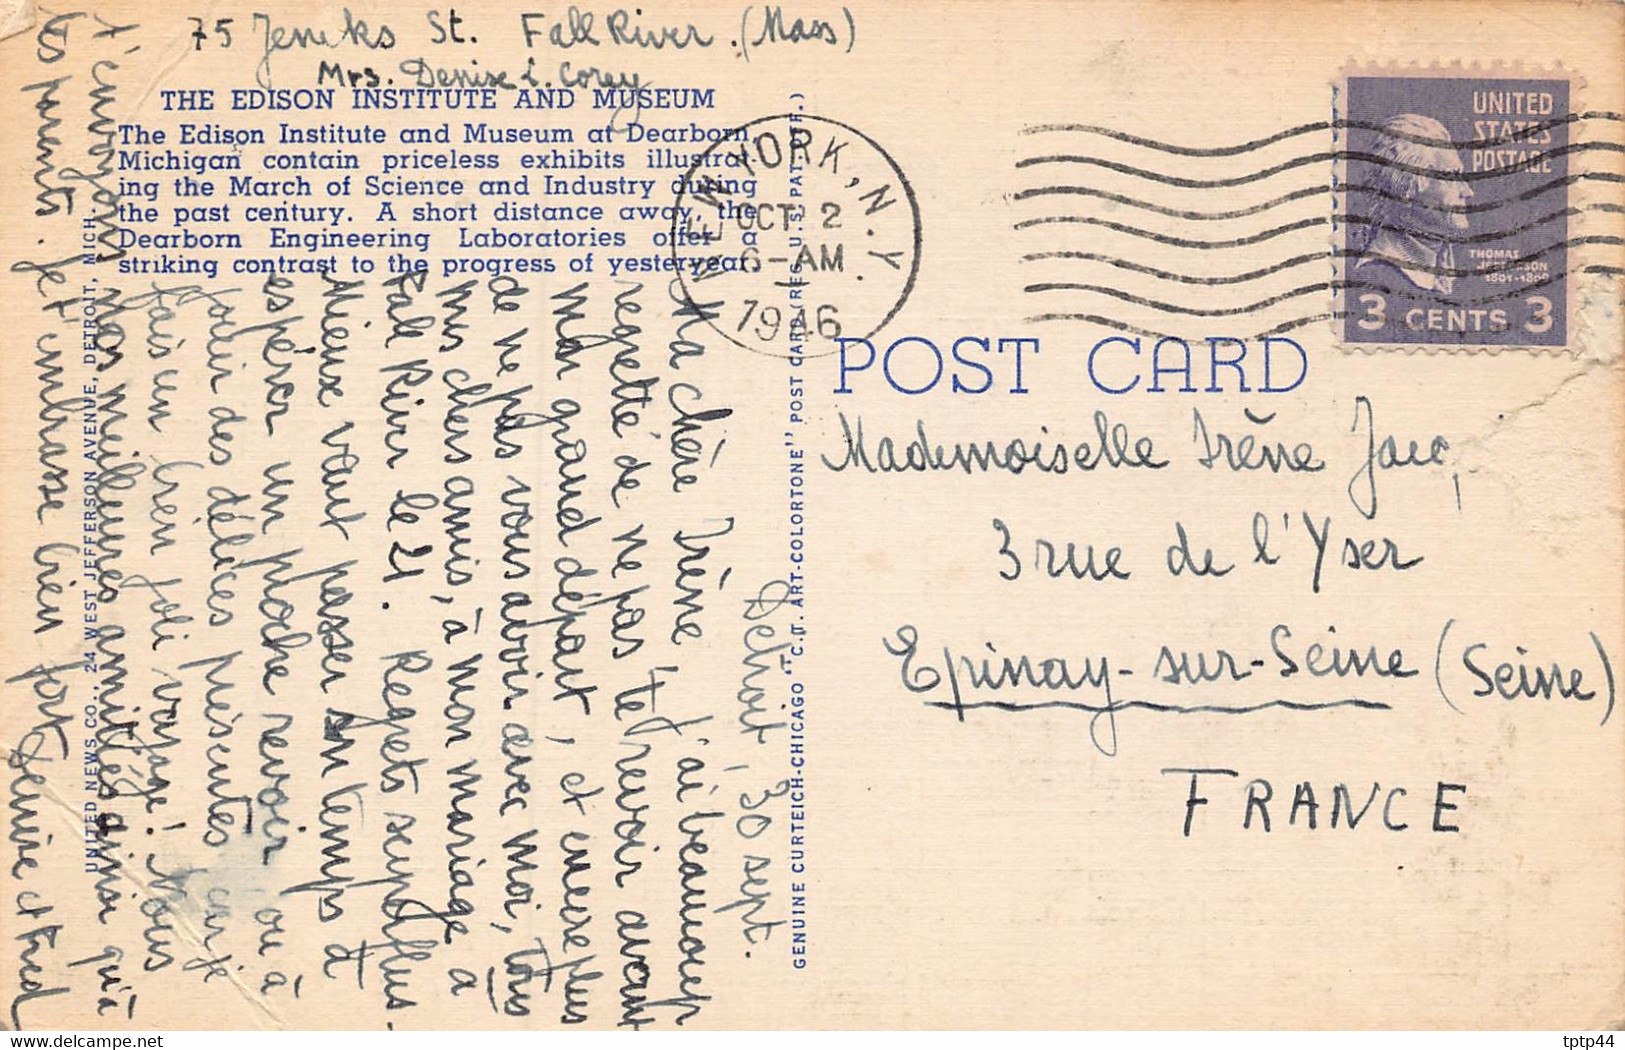 75 Jencks St. Fall River. (Mass)
Mrs. Denise L. Corey
THE EDISON INSTITUTE AND MUSEUM
The Edison Institute and Museum at Dearborn,
Michigan contain priceless exhibits illustrat-
ing the March of Science and Industry during
the past century. A short distance away, the
Dearborn Engineering Laboratories offer a
striking contrast to the progress of yesteryear.
NEW YORK, N.Y.
OCT 2
6-AM
1946
UNITED
STATES
POSTAGE
THOMAS
JEFFERSON
1801-1809
3 CENTS 3
POST CARD
Mademoiselle Irène Jacq,
3 rue de l'Yser
Epinay-sur-Seine (Seine)
FRANCE
GENUINE CURTEICH-CHICAGO "C.T. ART-COLORTONE" POST CARD (REG. U.S. PAT. OFF.)
Détroit, 30 sept.
Ma chère Irène, j'ai beaucoup
regretté de ne pas te revoir avant
mon grand départ, et encore plus
de ne pas vous avoir avec moi, tous
mes chers amis, à mon mariage à
Fall River le 21. Regrets superflus.
Mieux vaut passer son temps à
espérer un proche revoir ou à
jouir des délices présentes car je
fais un bien joli voyage! Nous
t'envoyons nos meilleures amitiés ainsi qu'à
tes parents. Je t'embrasse bien fort Denise et Fred
UNITED NEWS CO., 24 WEST JEFFERSON AVENUE, DETROIT, MICH.
tptp44